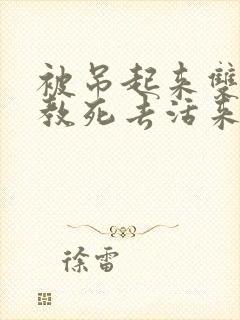 被吊起来双
教死去活来
徐雷